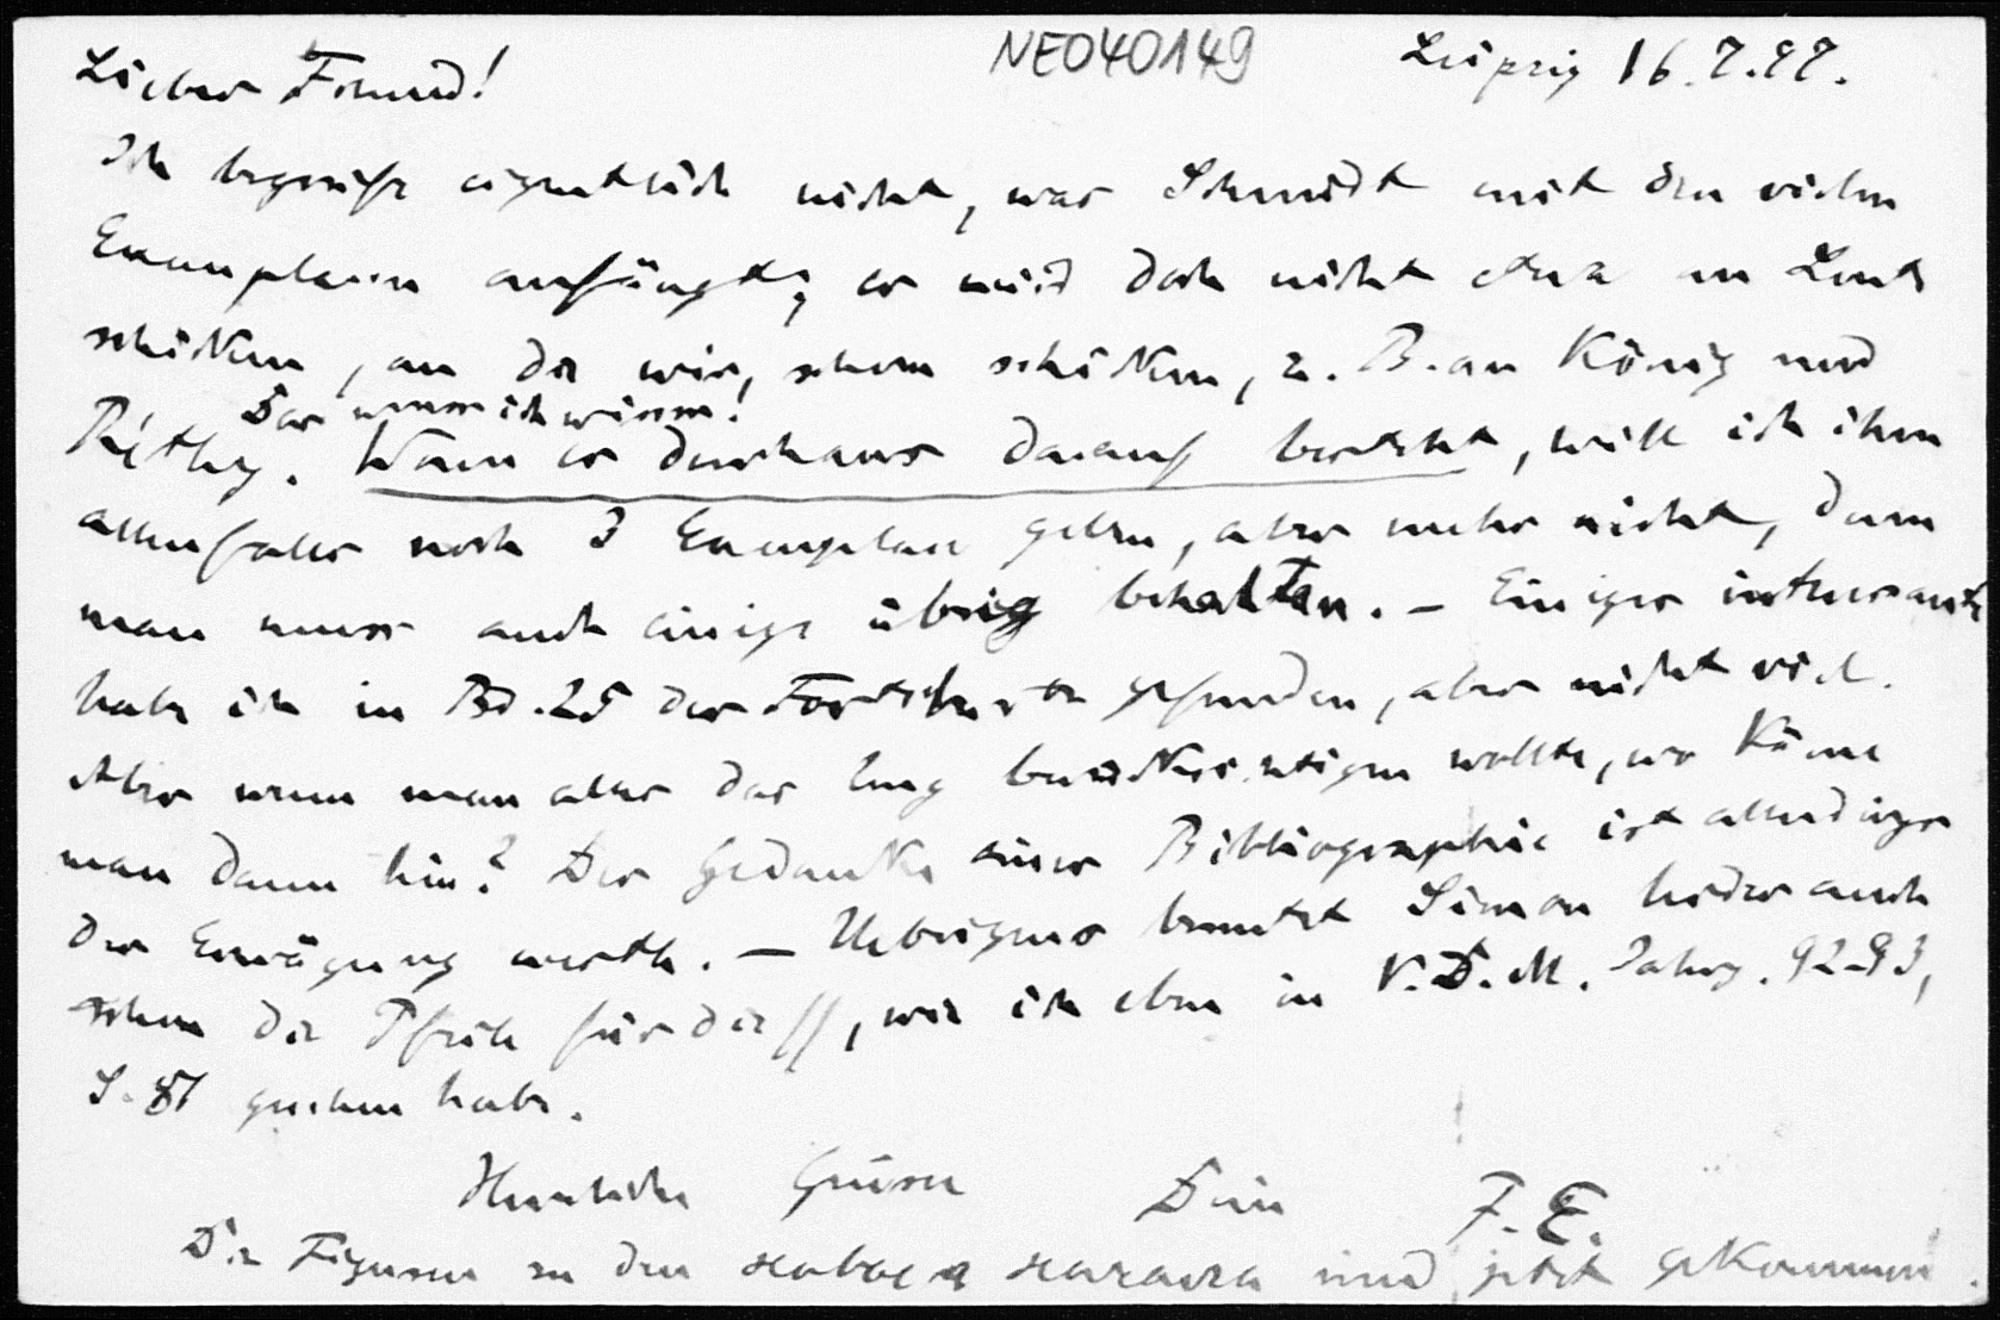 NE040149
Leipzig 16.7.97.
Lieber Freund!
Ich begreife eigentlich nicht, was Schmidt mit den vielen
Exemplaren anfängt; er wird doch nicht etwa an Leute
schicken, an die wir schon schicken, z. B. an König und
Das muss ich wissen!
Réthy. Wenn er durchaus darauf besteht, will ich ihm
allenfalls noch 3 Exemplare geben, aber mehr nicht, denn
man muss auch einige übrig behalten. – Einiges interessante
habe ich in Bd. 25 der Fortschritte gefunden, aber nicht viel.
Aber wenn man alles das Zeug berücksichtigen wollte, wo käme
man dann hin? Der Gedanke einer Bibliographie ist allerdings
der Erwägung werth. – Uebrigens benutzt Simon leider auch
schon die Pfeile für die //, wie ich eben in V. D. M. Jahrg. 92–93,
S. 81 gesehen habe.
Herzliche Grüsse Dein F. E.
Die Figuren zu den новое начала sind jetzt gekommen.